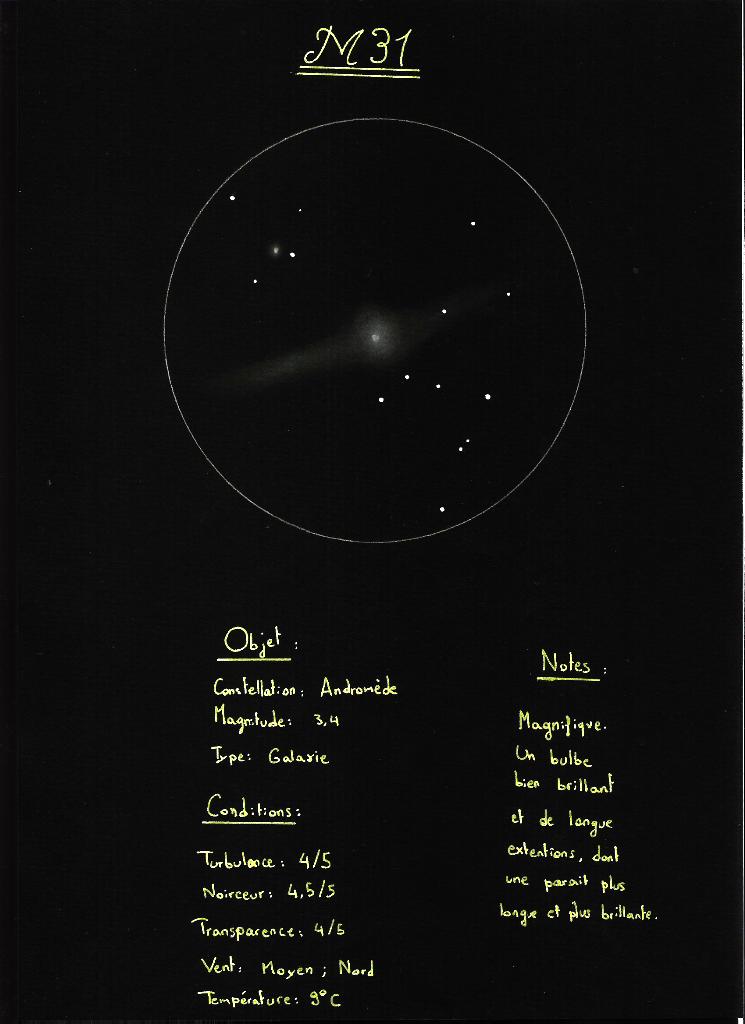 M31
Objet :
Constellation : Andromède
Magnitude : 3,4
Type : Galaxie
Conditions :
Turbulence : 4/5
Noirceur : 4,5/5
Transparence : 4/5
Vent : Moyen ; Nord
Température : 9°C
Notes :
Magnifique.
Un bulbe
bien brillant
et de longue
extentions, dont
une parait plus
longue et plus brillante.